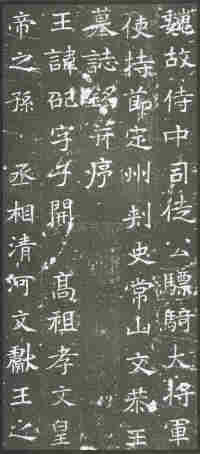 魏故侍中司徒公驃騎大將軍
使持節定州刾史常山文恭王
墓誌銘并序
王諱邵字子開 高祖孝文皇
帝之孫 丞相清河文獻王之